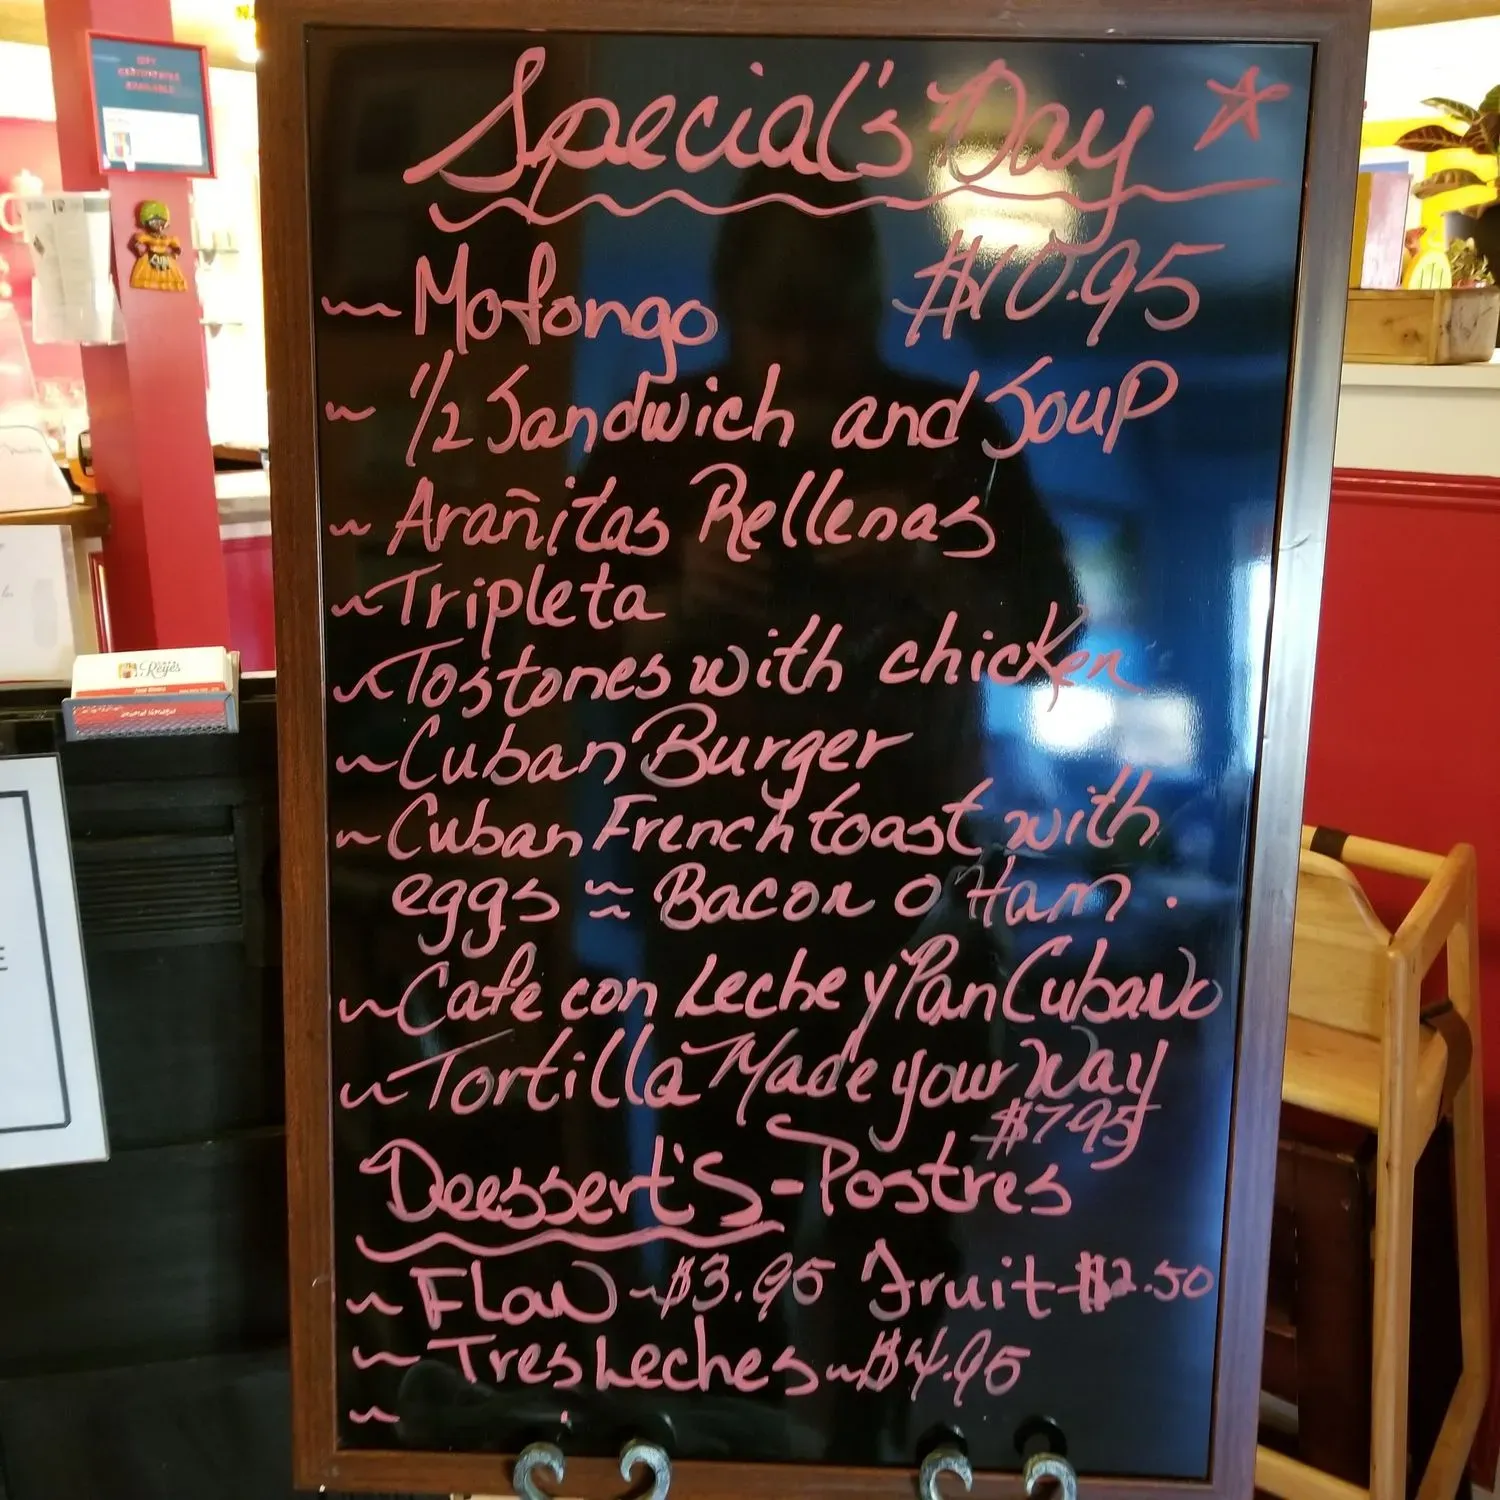 Special's Day
~ Mofongo $10.95
~ 1/2 Sandwich and Soup
~ Arañitas Rellenas
~ Tripleta
~ Tostones with chicken
~ Cuban Burger
~ Cuban French toast with
eggs ~ Bacon o Ham.
~ Cafe con Leche y Pan Cubano
~ Tortilla Made your way
$7.95
Deessert's - Postres
~ Flan ~ $3.95 Fruit - $2.50
~ Tres Leches ~ $4.95
~
GIFT
CERTIFICATES
AVAILABLE
Reyes